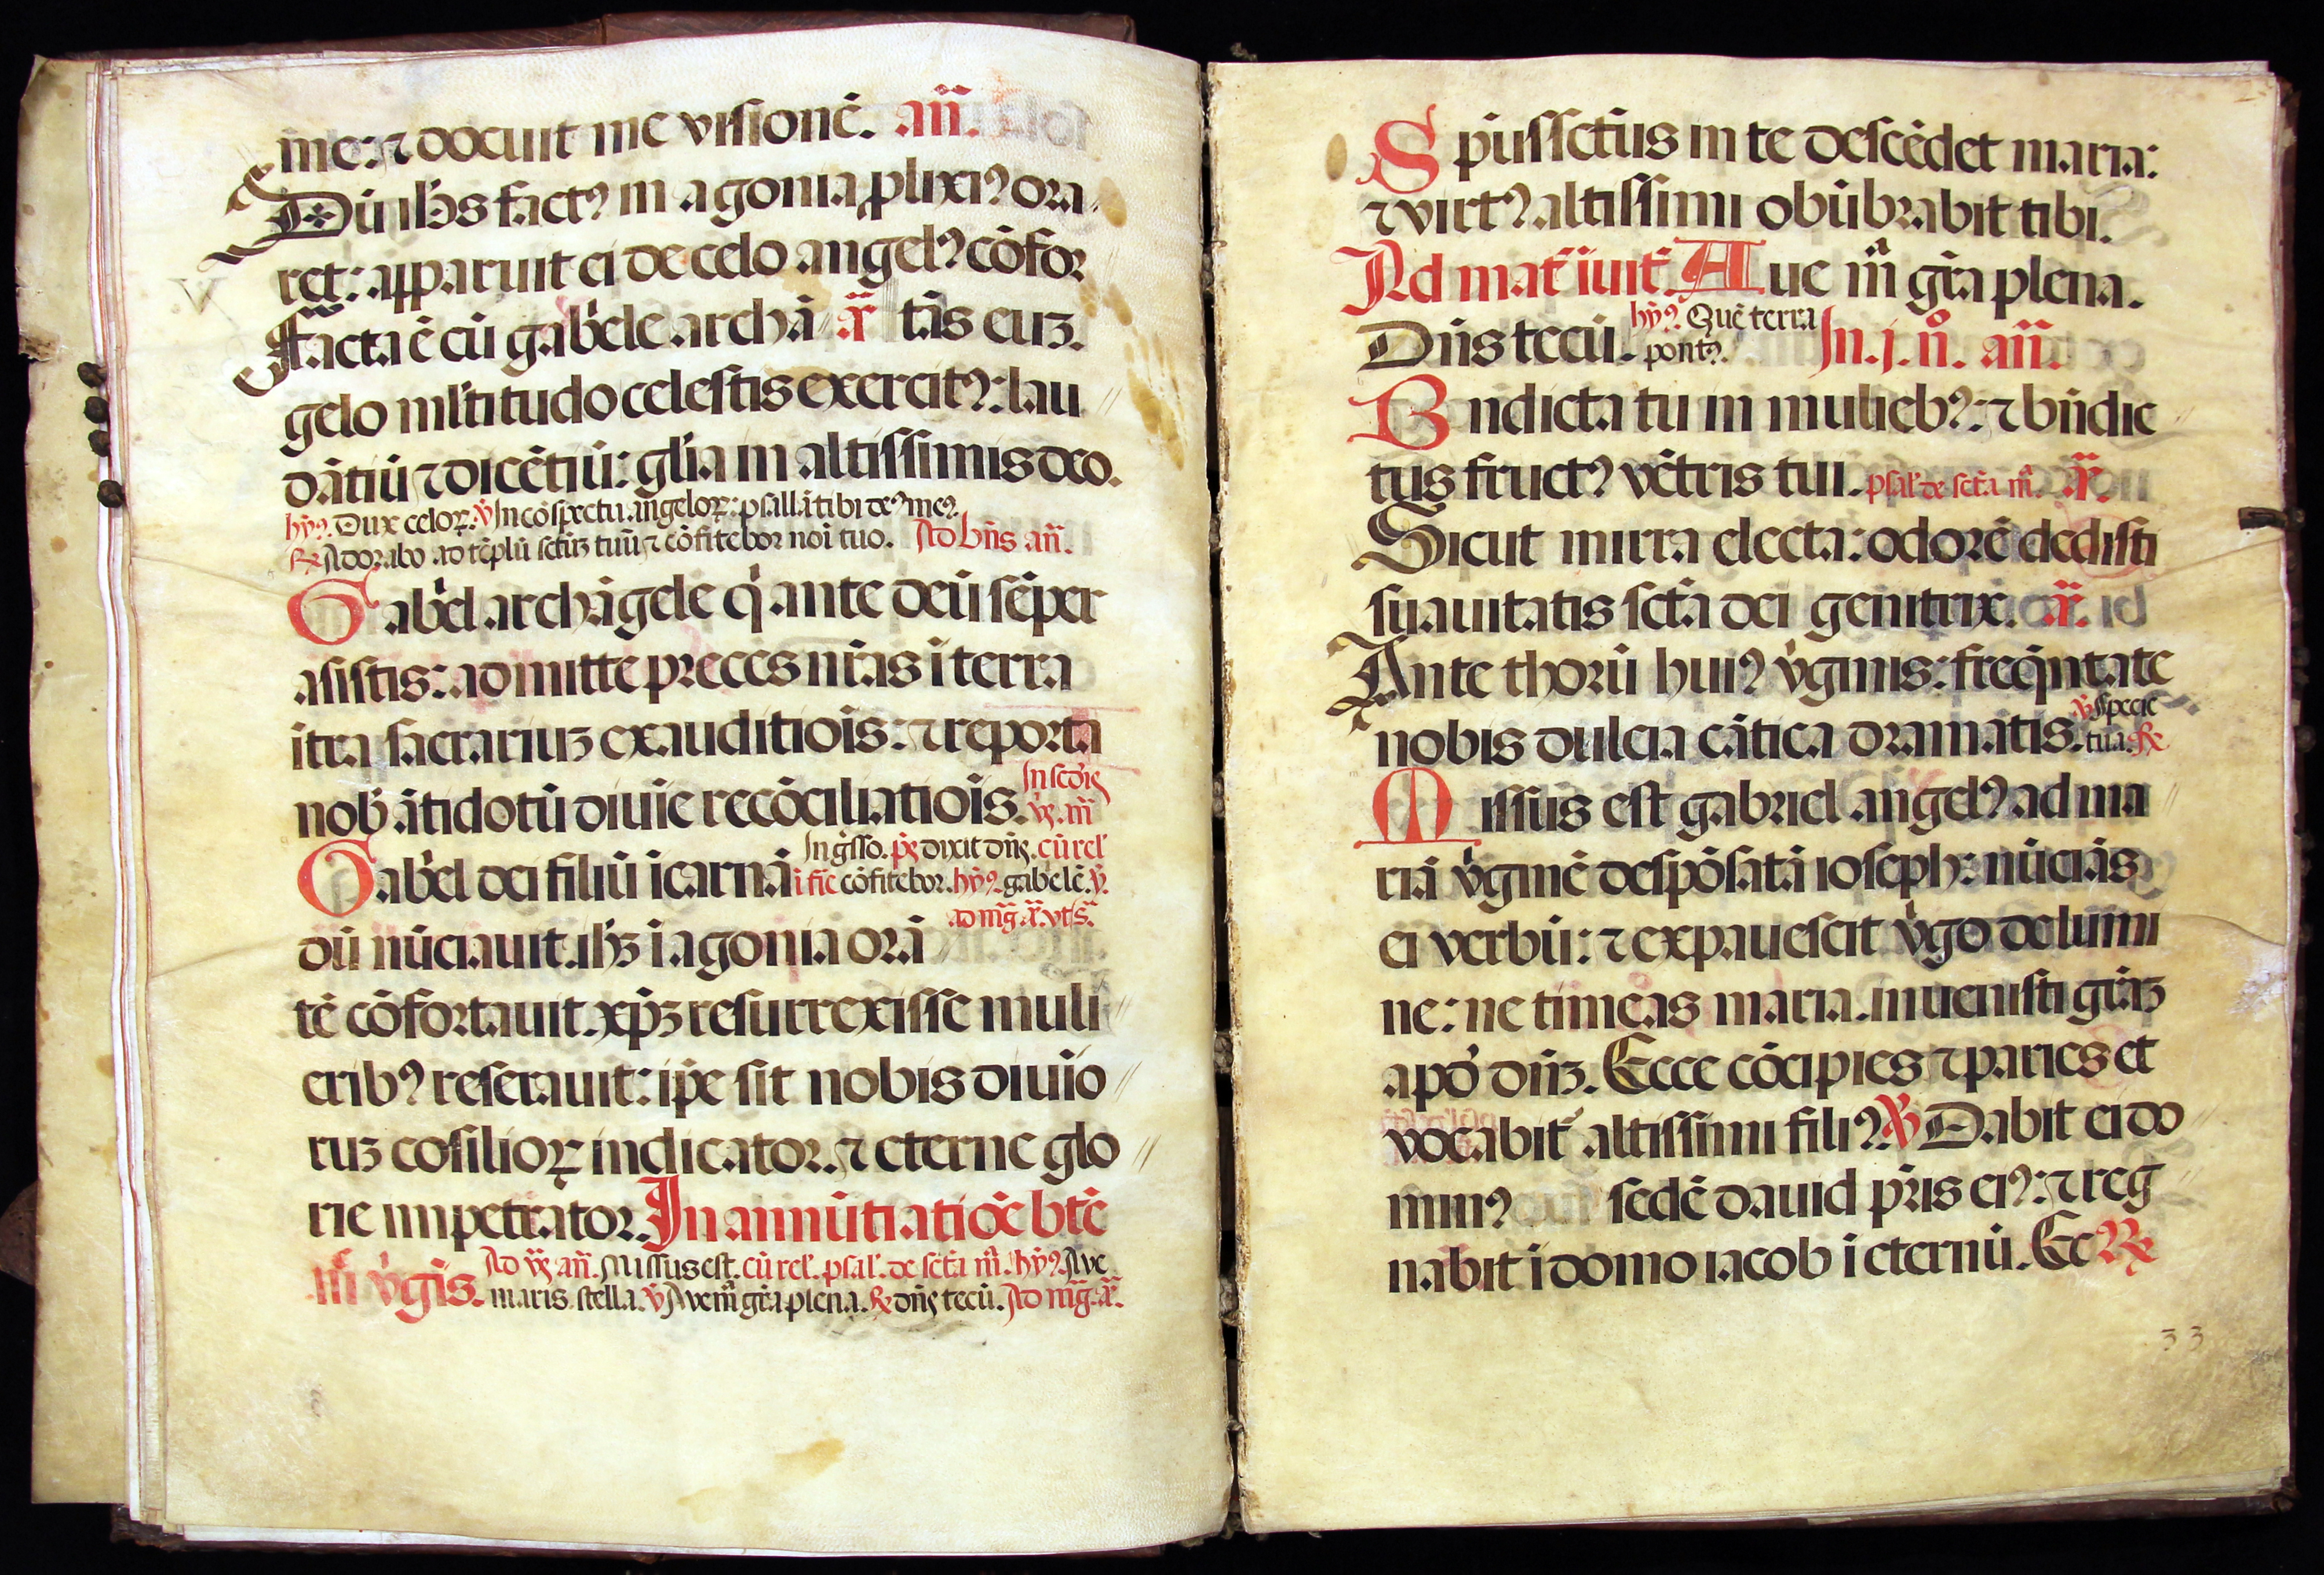 me: ⁊ docuit me visionē. añ.
Dū ih̄s factꝰ in agonia ꝓlixiꝰ ora
ret: apparuit ei de celo angelꝰ cōfor
Facta ē cū gab̄ele archā a᷈ tās euꝫ.
gelo ml̄titudo celestis exercitꝰ: lau
dātiū ⁊ dicētiū: gl̄ia in altissimis deo.
hỹꝰ. Dux celoꝝ. ℣ In cōspectu angeloꝝ: psallā tibi deꝰ meꝰ.
℟ Adorabo ad tēplū sctūꝫ tuū ⁊ cōfitebor noī tuo. Ad bn̄s añ.
Gab̄el archāgele q̇ ante deū sēper
asistis: admitte preces nr̄as ī terra
itra sacrariuꝫ exauditiōis: ⁊ reporta
nob̄ ātidotū diuīe recōciliatiōis. In scd̄is
v̄ꝭ. añ
Gab̄el dei filiū īcarnā Ingr̄sso. p̄ꝭ dixit dn̄ꝭ. cū rel̄
ī fīe cōfitebor. hỹꝰ. gabelē. ℣.
ad mg̃. a᷈. vt s̄.
dū nūciauit. ih̄ꝫ ī agonia orā
tē cōfortauit. xp̄ꝫ resurrexisse muli
eribꝰ reserauit: ip̄e sit nobis diuīo
ruꝫ cosilioꝝ indicator. ⁊ eterne glo
rie impetrator. In annūtiatiōe btē
m̄ v̇gīs. Ad v̄ꝭ añ. Missus est. cū rel̄. psal̄. de sctā m̄. hỹꝰ. Ave
maris stella. ℣ Ave m̄ gr̄a plena. ℟ dn̄ꝭ tecū. Ad mg̃. a᷈.
Sp̄ūs sctūs in te descēdet maria:
⁊ virtꝰ altissimi obūbrabit tibi.
Ad mat̄ īuit̄. Aue m̄ gr̄a plena.
Dn̄s tecū. hỹꝰ. Quē terra
pontꝰ. In. j. n̊. añ.
Bn̄dicta tu in muliebꝰ: ⁊ bn̄dic
tus fructꝰ vētris tui. psal̄ de sctā m̄. a᷈.
Sicut mirra electa: odorē dedisti
suauitatis sctā dei genitrix. a᷈.
Ante thorū huiꝰ v̇ginis: freq̄ntate
nobis dulcia cātica dramatis. ℣ Specie
tua. ℟
Missus est gabriel angelꝰ ad ma
riā v̇ginē despōsatā ioseph: nūciās
ei verbū: ⁊ expauescit v̇go de lumi
ne: ne timeas maria. inuenisti gr̄aꝫ
apd̄ dn̄ꝫ. Ecce cōcipies ⁊ paries et
vocabit̄ altissimi filiꝰ. ℣ Dabit ei do
minꝰ sedē dauid pr̄is eiꝰ: ⁊ reg
nabit ī domo iacob ī eternū. Ec ℟
33